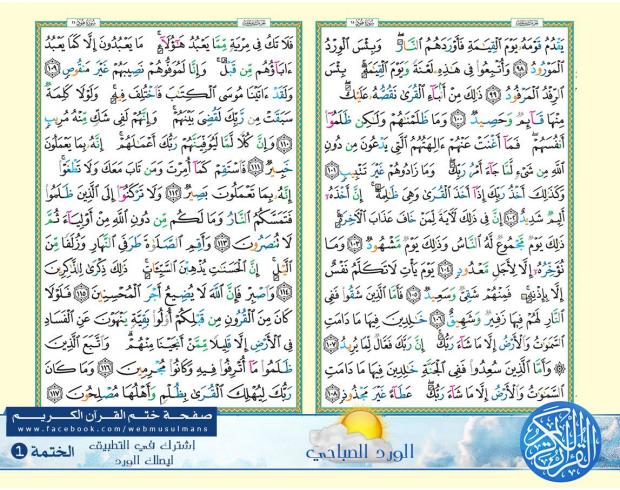 سُورَةُ هُودٍ ١١
يَقْدُمُ قَوْمَهُۥ يَوْمَ ٱلْقِيَٰمَةِ فَأَوْرَدَهُمُ ٱلنَّارَ ۖ وَبِئْسَ ٱلْوِرْدُ
ٱلْمَوْرُودُ ٩٨ وَأُتْبِعُوا۟ فِى هَٰذِهِۦ لَعْنَةً وَيَوْمَ ٱلْقِيَٰمَةِ ۚ بِئْسَ
ٱلرِّفْدُ ٱلْمَرْفُودُ ٩٩ ذَٰلِكَ مِنْ أَنۢبَآءِ ٱلْقُرَىٰ نَقُصُّهُۥ عَلَيْكَ ۖ
مِنْهَا قَآئِمٌ وَحَصِيدٌ ١٠٠ وَمَا ظَلَمْنَٰهُمْ وَلَٰكِن ظَلَمُوٓا۟
أَنفُسَهُمْ ۖ فَمَآ أَغْنَتْ عَنْهُمْ ءَالِهَتُهُمُ ٱلَّتِى يَدْعُونَ مِن دُونِ
ٱللَّهِ مِن شَىْءٍ لَّمَّا جَآءَ أَمْرُ رَبِّكَ ۖ وَمَا زَادُوهُمْ غَيْرَ تَتْبِيبٍ ١٠١
وَكَذَٰلِكَ أَخْذُ رَبِّكَ إِذَآ أَخَذَ ٱلْقُرَىٰ وَهِىَ ظَٰلِمَةٌ ۚ إِنَّ أَخْذَهُۥٓ
أَلِيمٌ شَدِيدٌ ١٠٢ إِنَّ فِى ذَٰلِكَ لَءَايَةً لِّمَنْ خَافَ عَذَابَ ٱلْءَاخِرَةِ ۚ
ذَٰلِكَ يَوْمٌ مَّجْمُوعٌ لَّهُ ٱلنَّاسُ وَذَٰلِكَ يَوْمٌ مَّشْهُودٌ ١٠٣ وَمَا
نُؤَخِّرُهُۥٓ إِلَّا لِأَجَلٍ مَّعْدُودٍ ١٠٤ يَوْمَ يَأْتِ لَا تَكَلَّمُ نَفْسٌ
إِلَّا بِإِذْنِهِۦ ۚ فَمِنْهُمْ شَقِىٌّ وَسَعِيدٌ ١٠٥ فَأَمَّا ٱلَّذِينَ شَقُوا۟ فَفِى
ٱلنَّارِ لَهُمْ فِيهَا زَفِيرٌ وَشَهِيقٌ ١٠٦ خَٰلِدِينَ فِيهَا مَا دَامَتِ
ٱلسَّمَٰوَٰتُ وَٱلْأَرْضُ إِلَّا مَا شَآءَ رَبُّكَ ۚ إِنَّ رَبَّكَ فَعَّالٌ لِّمَا يُرِيدُ ١٠٧
۞ وَأَمَّا ٱلَّذِينَ سُعِدُوا۟ فَفِى ٱلْجَنَّةِ خَٰلِدِينَ فِيهَا مَا دَامَتِ
ٱلسَّمَٰوَٰتُ وَٱلْأَرْضُ إِلَّا مَا شَآءَ رَبُّكَ ۖ عَطَآءً غَيْرَ مَجْذُوذٍ ١٠٨
سُورَةُ هُودٍ ١١
فَلَا تَكُ فِى مِرْيَةٍ مِّمَّا يَعْبُدُ هَٰٓؤُلَآءِ ۚ مَا يَعْبُدُونَ إِلَّا كَمَا يَعْبُدُ
ءَابَآؤُهُم مِّن قَبْلُ ۚ وَإِنَّا لَمُوَفُّوهُمْ نَصِيبَهُمْ غَيْرَ مَنقُوصٍ ١٠٩
وَلَقَدْ ءَاتَيْنَا مُوسَى ٱلْكِتَٰبَ فَٱخْتُلِفَ فِيهِ ۚ وَلَوْلَا كَلِمَةٌ
سَبَقَتْ مِن رَّبِّكَ لَقُضِىَ بَيْنَهُمْ ۚ وَإِنَّهُمْ لَفِى شَكٍّ مِّنْهُ مُرِيبٍ
١١٠ وَإِنَّ كُلًّا لَّمَّا لَيُوَفِّيَنَّهُمْ رَبُّكَ أَعْمَٰلَهُمْ ۚ إِنَّهُۥ بِمَا يَعْمَلُونَ
خَبِيرٌ ١١١ فَٱسْتَقِمْ كَمَآ أُمِرْتَ وَمَن تَابَ مَعَكَ وَلَا تَطْغَوْا۟ ۚ
إِنَّهُۥ بِمَا تَعْمَلُونَ بَصِيرٌ ١١٢ وَلَا تَرْكَنُوٓا۟ إِلَى ٱلَّذِينَ ظَلَمُوا۟
فَتَمَسَّكُمُ ٱلنَّارُ وَمَا لَكُم مِّن دُونِ ٱللَّهِ مِنْ أَوْلِيَآءَ ثُمَّ
لَا تُنصَرُونَ ١١٣ وَأَقِمِ ٱلصَّلَوٰةَ طَرَفَىِ ٱلنَّهَارِ وَزُلَفًا مِّنَ
ٱلَّيْلِ ۚ إِنَّ ٱلْحَسَنَٰتِ يُذْهِبْنَ ٱلسَّيِّـَٔاتِ ۚ ذَٰلِكَ ذِكْرَىٰ لِلذَّٰكِرِينَ
١١٤ وَٱصْبِرْ فَإِنَّ ٱللَّهَ لَا يُضِيعُ أَجْرَ ٱلْمُحْسِنِينَ ١١٥ فَلَوْلَا
كَانَ مِنَ ٱلْقُرُونِ مِن قَبْلِكُمْ أُو۟لُوا۟ بَقِيَّةٍ يَنْهَوْنَ عَنِ ٱلْفَسَادِ
فِى ٱلْأَرْضِ إِلَّا قَلِيلًا مِّمَّنْ أَنجَيْنَا مِنْهُمْ ۗ وَٱتَّبَعَ ٱلَّذِينَ
ظَلَمُوا۟ مَآ أُتْرِفُوا۟ فِيهِ وَكَانُوا۟ مُجْرِمِينَ ١١٦ وَمَا كَانَ
رَبُّكَ لِيُهْلِكَ ٱلْقُرَىٰ بِظُلْمٍ وَأَهْلُهَا مُصْلِحُونَ ١١٧
القرآن الكريم
الورد الصباحي
صفحة ختم القرآن الكريم
www.facebook.com/webmusulmans
إشترك في التطبيق
ليصلك الورد
الختمة 1